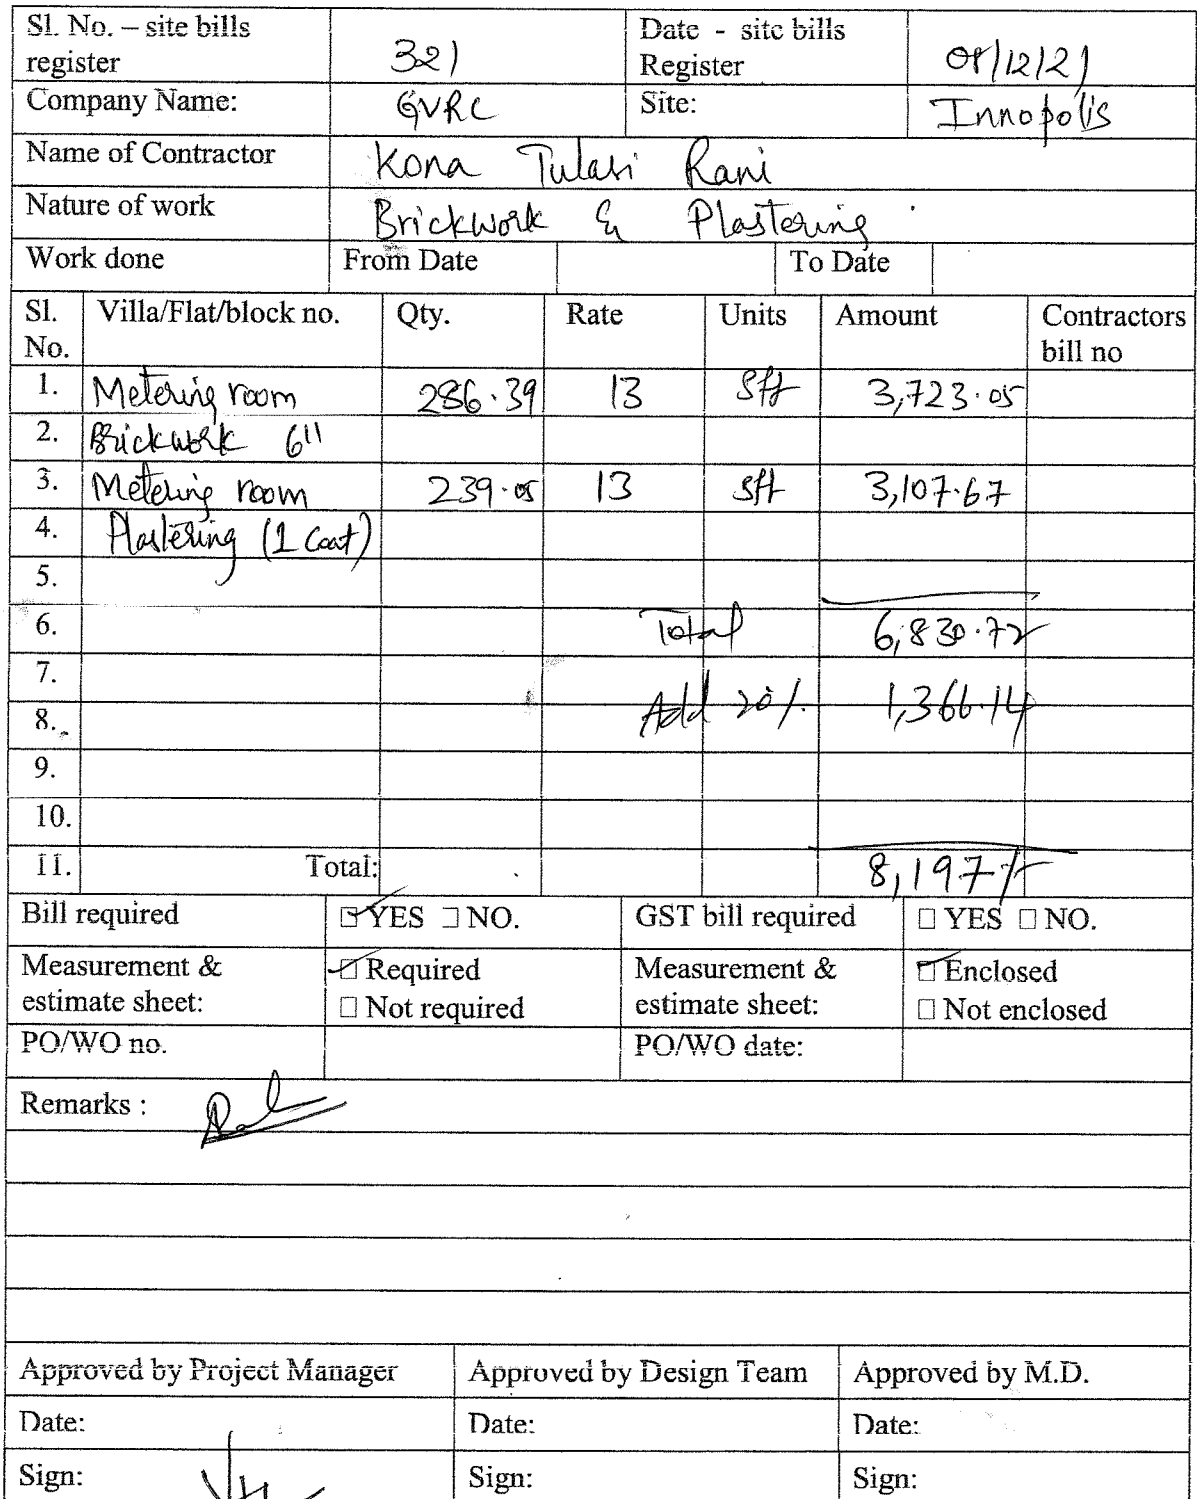 Sl. No. – site bills register 321 Date - site bills Register 08/12/21
Company Name: GVRC Site: Innopolis
Name of Contractor Kona Tulasi Rani
Nature of work Brickwork & Plastering
Work done From Date To Date
Sl. No. Villa/Flat/block no. Qty. Rate Units Amount Contractors bill no
1. Metering room 286.39 13 sft 3,723.05
2. Brickwork 6"
3. Metering room 239.05 13 sft 3,107.67
4. Plastering (1 Coat)
5.
6. Total 6,830.72
7.
8. Add 20%. 1,366.14
9.
10.
11. Total: 8,197/-
Bill required ☑ YES ☐ NO. GST bill required ☐ YES ☐ NO.
Measurement & estimate sheet: ☑ Required ☐ Not required Measurement & estimate sheet: ☑ Enclosed ☐ Not enclosed
PO/WO no. PO/WO date:
Remarks :
Approved by Project Manager Approved by Design Team Approved by M.D.
Date: Date: Date:
Sign: Sign: Sign: